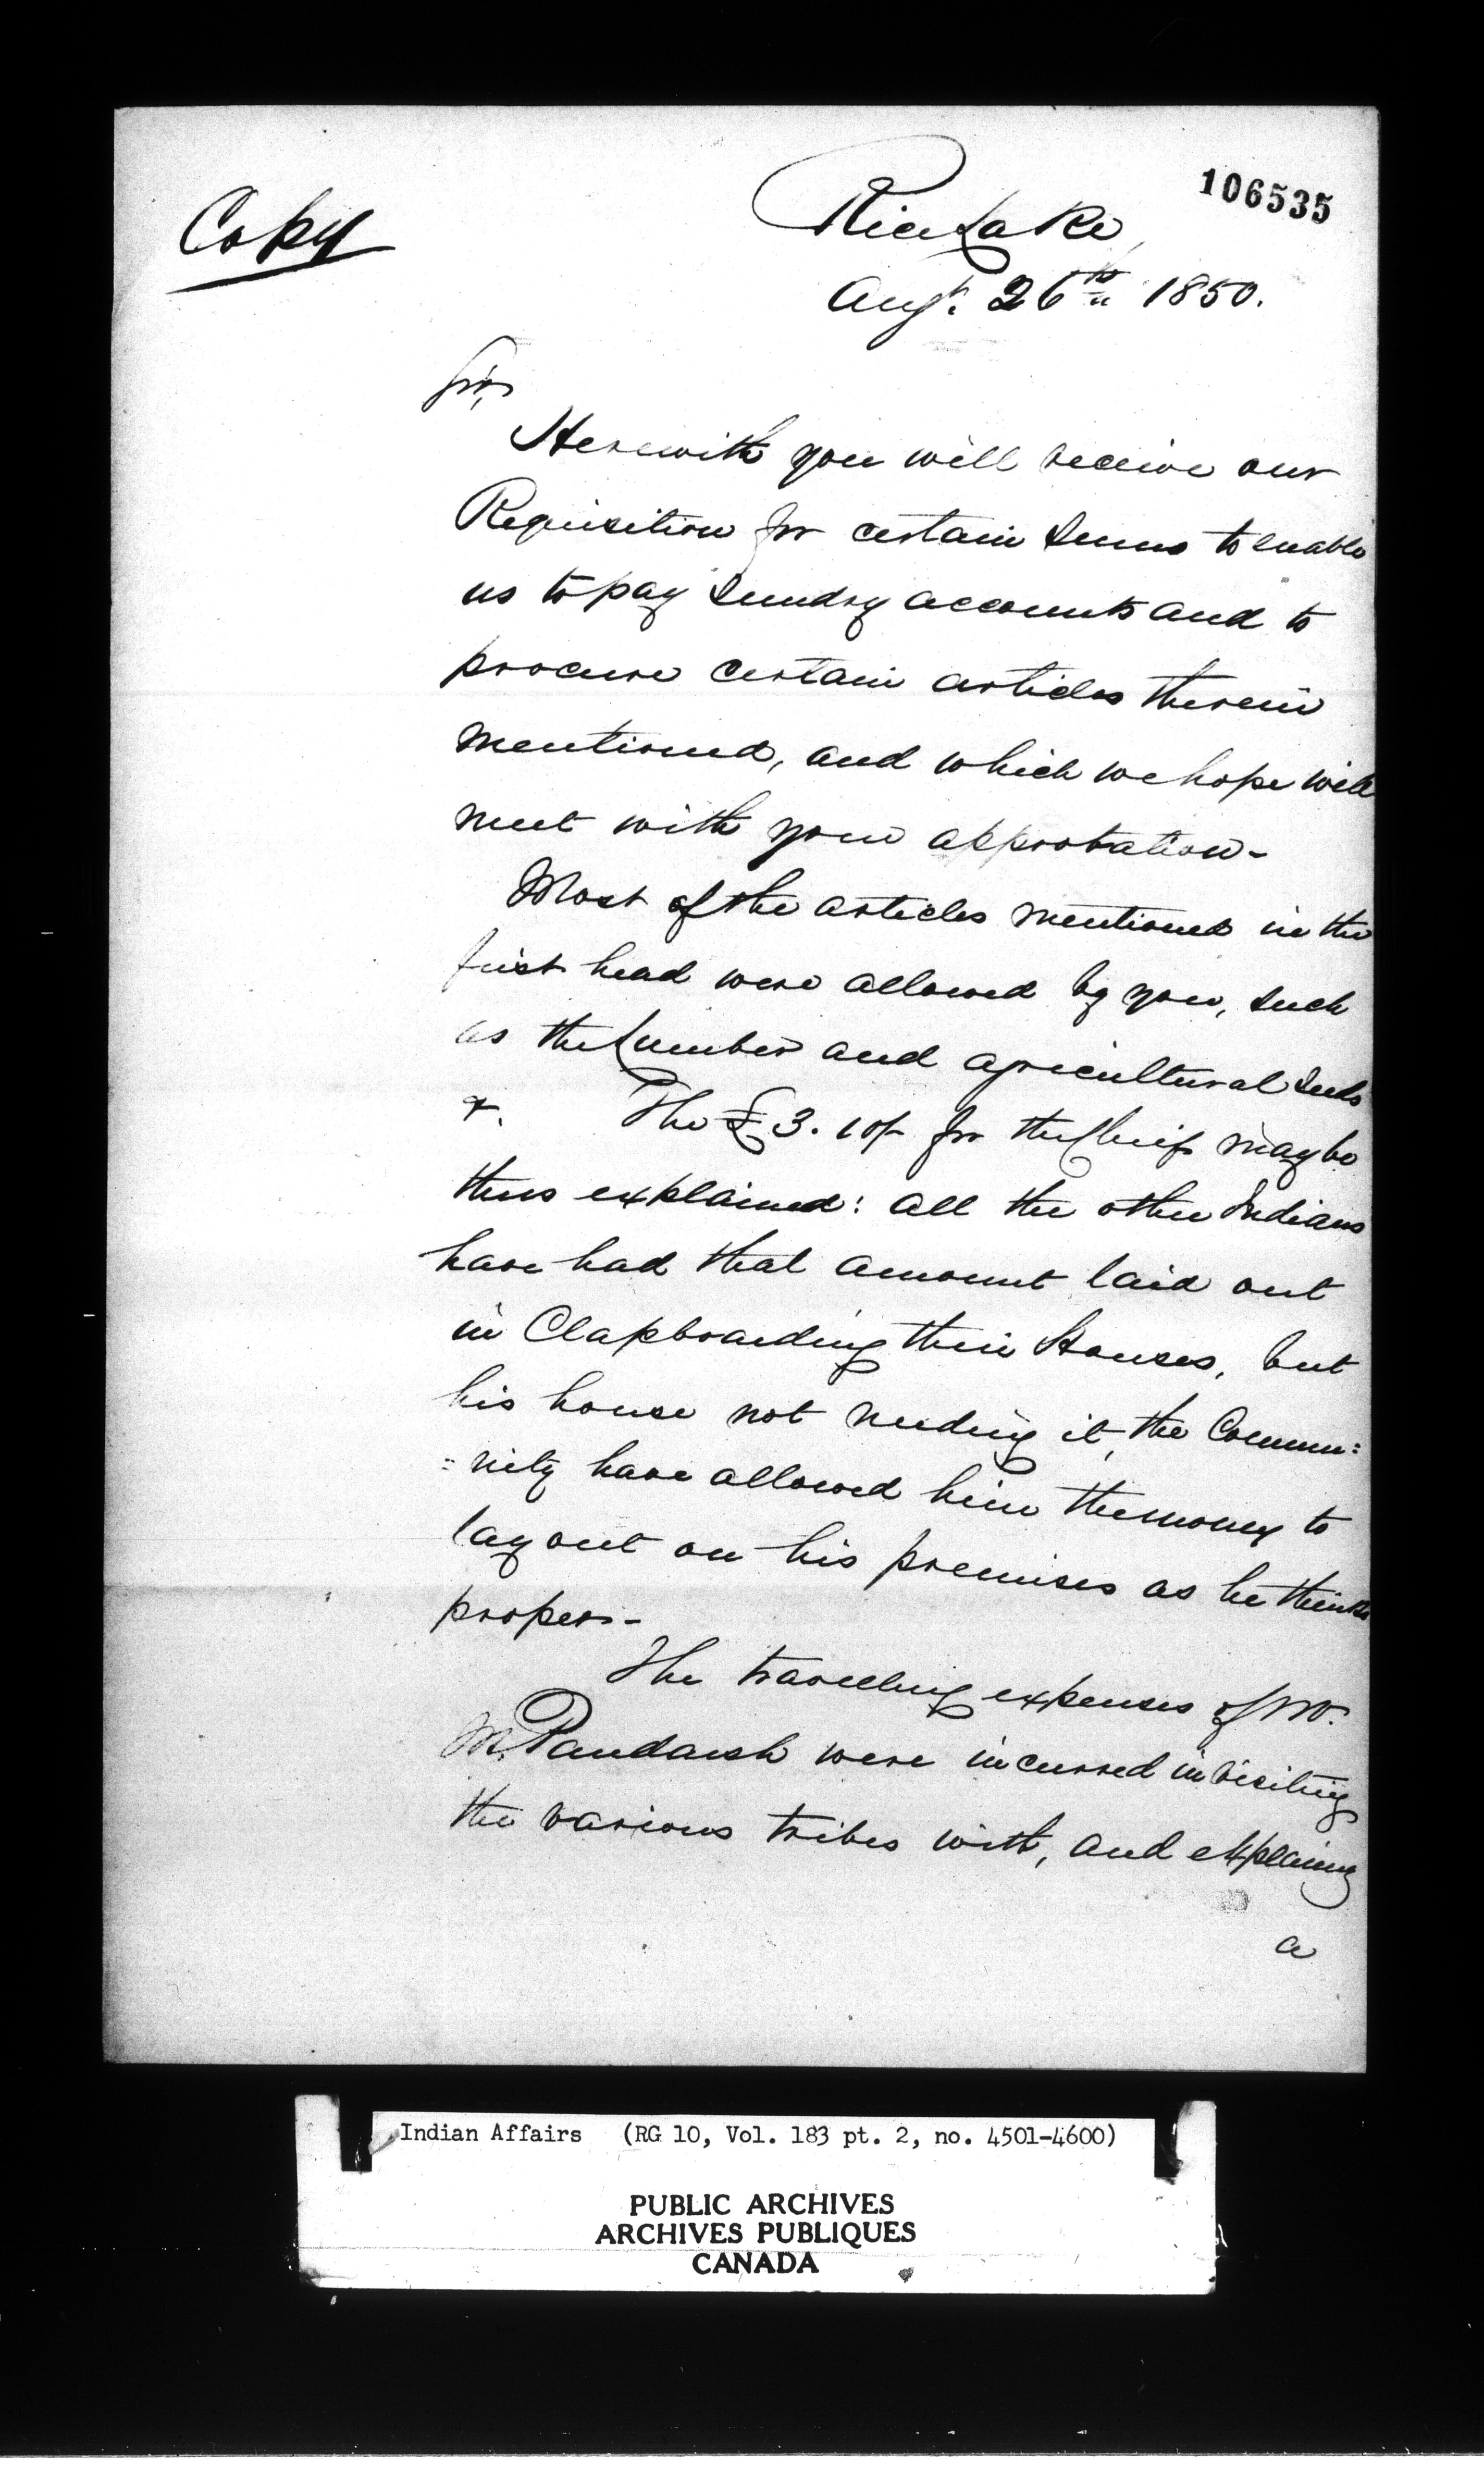 106535
Copy
Rice Lake,
Augt. 26th 1850.
Sir,
Herewith you will receive our
Requisition for certain Sums to enable
us to pay Sundry accounts and to
procure certain articles therein
mentioned, and which we hope will
meet with your approbation-
Most of the articles mentioned in the
first head were allowed by you, such
as the Lumber and agricultural Seeds
&. The £3.10/- for the Chief may be
thus explained: all the other Indians
have had that amount laid out
in Clapboarding their Houses, but
his house not needing it, the Commu:
=nity have allowed him the money to
lay out on his premises as he thinks
proper.-
The travelling expenses of
M. Paudaush were incurred in visiting
the various tribes with, and explaining
a
Indian Affairs (RG 10, Vol. 183 pt. 2, no. 4501-4600)
PUBLIC ARCHIVES
ARCHIVES PUBLIQUES
CANADA